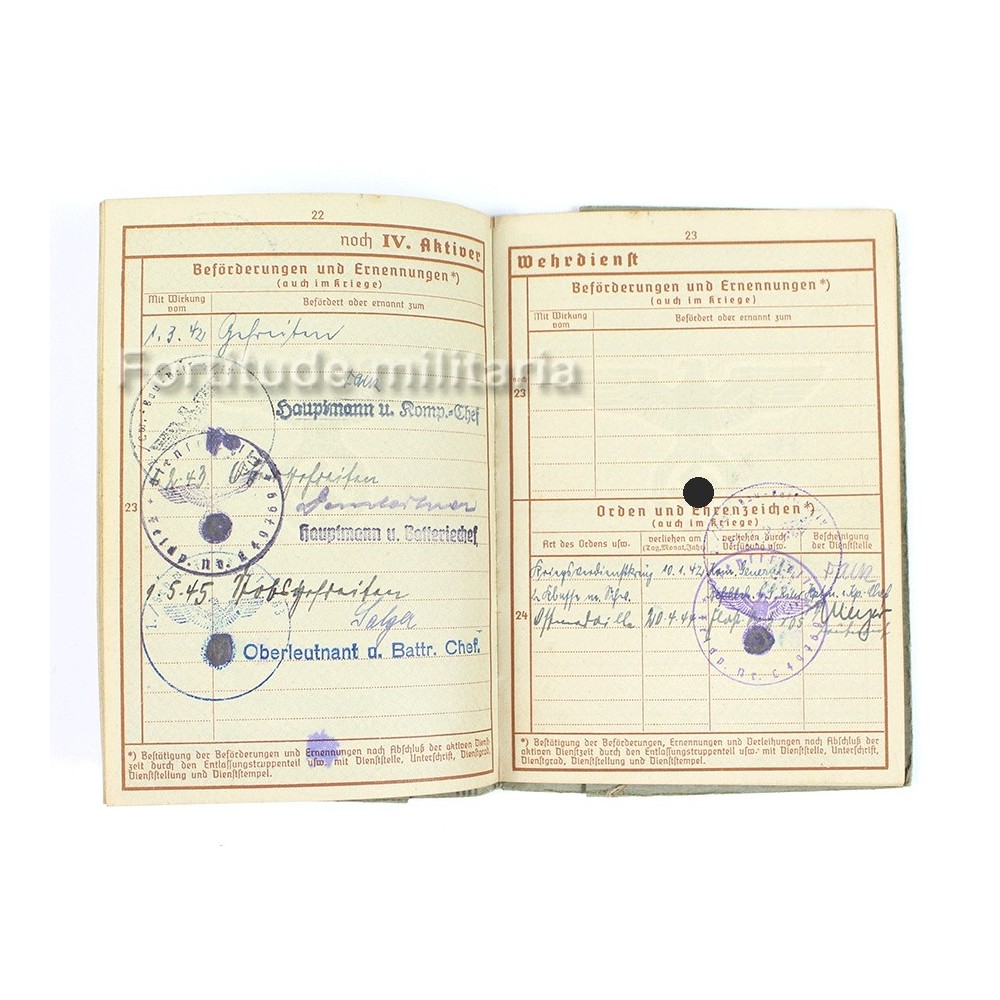 22
noch IV. Aktiver
Beförderungen und Ernennungen*)
(auch im Kriege)
Mit Wirkung vom
Befördert oder ernannt zum
1.3.42 Gefreiten
Fortitude militaria
Hauptmann u. Komp.-Chef
2.43
23
Hauptmann u. Batteriechef
1.5.45. Stabsgefreiten
Oberleutnant u. Battr. Chef.
*) Bestätigung der Beförderungen und Ernennungen nach Abschluß der aktiven Dienst-
zeit durch den Entlassungstruppenteil usw. mit Dienststelle, Unterschrift, Dienstgrad,
Dienststellung und Dienststempel.
23
Wehrdienst
Beförderungen und Ernennungen*)
(auch im Kriege)
Mit Wirkung vom
Befördert oder ernannt zum
23
Orden und Ehrenzeichen*)
(auch im Kriege)
Art des Ordens usw.
verliehen am (Tag, Monat, Jahr)
verliehen durch Verfügung usw.
Bescheinigung der Dienststelle
Kriegsverdienstkreuz 10.1.42
2. Klasse m. Schw.
24
Ostmedaille 20.4.44
*) Bestätigung der Beförderungen, Ernennungen und Verleihungen nach Abschluß der
aktiven Dienstzeit durch den Entlassungstruppenteil usw. mit Dienststelle, Unterschrift,
Dienstgrad, Dienststellung und Dienststempel.